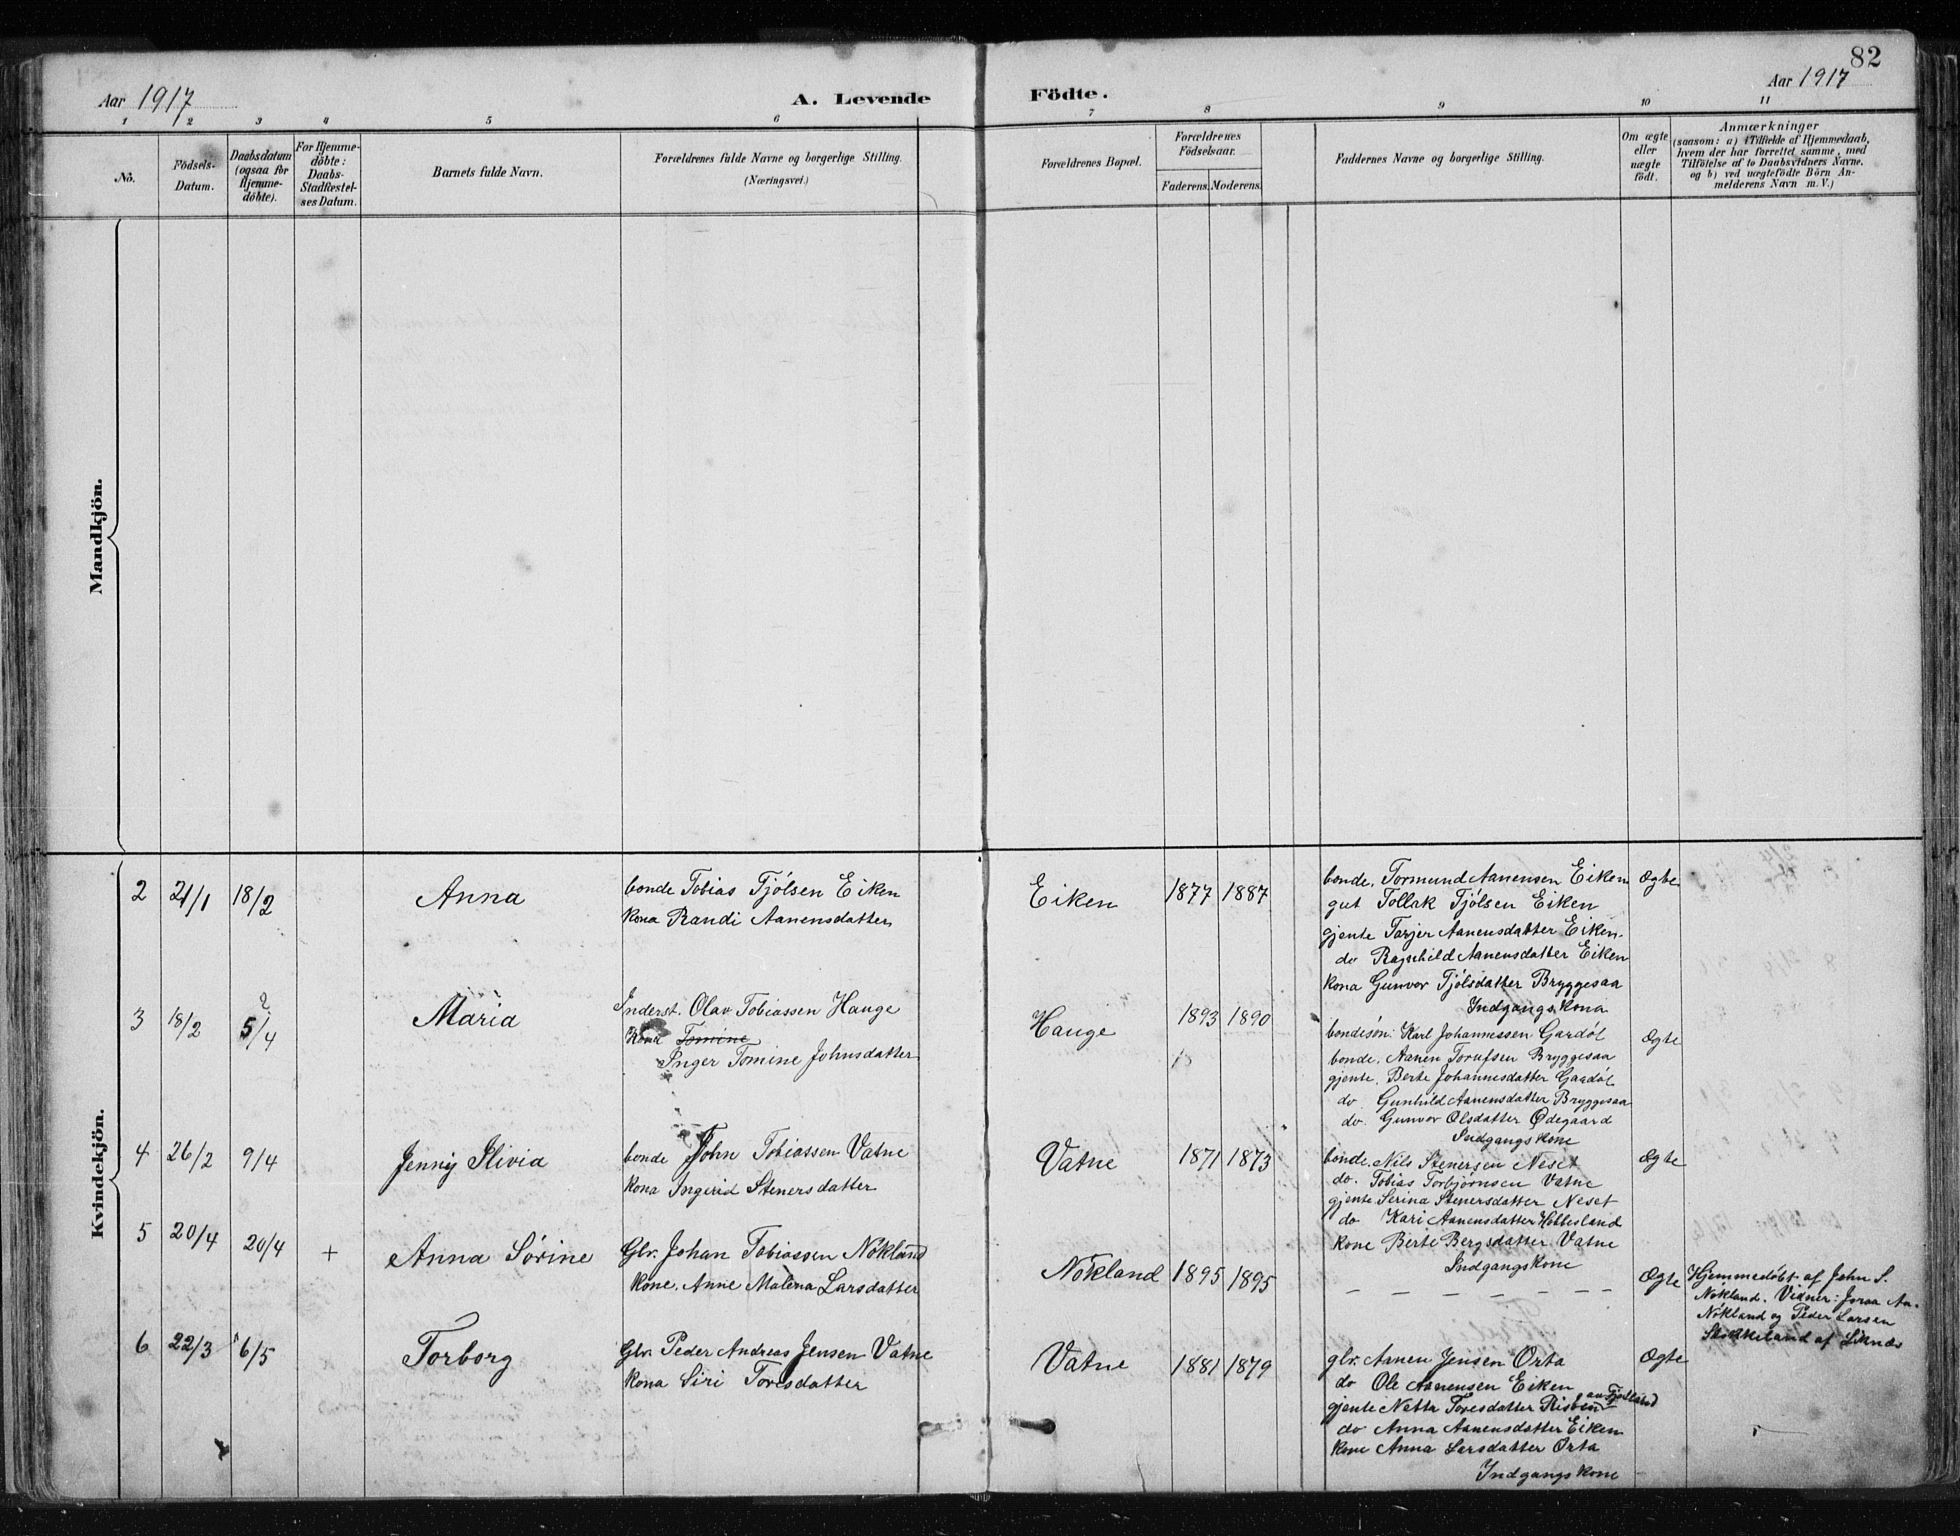 82
Aar 1917
A. Levende Födte.
Aar 1917
1 2 3 4 5 6 7 8 9 10 11
No.
Födsels-
Datum.
Daabsdatum
(ogsaa for
Hjemme-
döbte).
For Hjemme-
döbte:
Daabs-
Stadfæstel-
ses Datum.
Barnets fulde Navn.
Forældrenes fulde Navne og borgerlige Stilling.
(Næringsvei.)
Forældrenes Bopæl.
Forældrenes
Födselsaar.
Faderens. Moderens.
Faddernes Navne og borgerlige Stilling.
Om ægte
eller
uægte
födt.
Anmærkninger
(saasom: a) i Tilfælde af Hjemmedaab,
hvem der har forrettet samme, med
Tilföielse af to Daabsvidners Navne.
og b) ved uægtefödte Börn An-
melderens Navn m. V.)
Mandkjön.
Kvindekjön.
2 21/1 18/2
Anna
bonde Tobias Tjölsen Eiken
kona Randi Aanensdatter
Eiken 1877 1887
bonde, Tormund Aanensen Eiken
gut Tollak Tjölsen Eiken
gjente Tarjer Aanensdatter Eiken.
do Ragnhild Aanensdatter Eiken
kona Gunvor Tjölsdatter Bryggesaa
Indgangskona
Ægte
3 18/2 5/4
Maria
Inderst. Olav Tobiassen Hauge
kona Tomine
Inger Tomine Johnsdatter
Hauge 1893 1890
18
bondesön. Karl Johannessen Gardöl
bonde. Aanen Torufsen Bryggesaa
gjente. Berte Johannesdatter Gardöl
do Gunhild Aanensdatter Bryggesaa
do. Gunvor Olsdatter Ødegaard
Indgangskone
Ægte
4 26/2 9/4
Jenny Slivia
bonde John Tobiassen Vatne
kona Ingerid Stenersdatter
Vatne 1871 1873
bonde. Nils Stenersen Neset
do. Tobias Torbjörnsen Vatne
gjente Serina Stenersdatter Neset
do Kari Aanensdatter Hobbesland
kone Berte Bergsdatter Vatne
Indgangskone
Ægte
5 20/4 20/4 +
Anna Sörine
Gbr. Johan Tobiassen Nökland
kone. Anne Malena Larsdatter
Nökland 1895 1895
Ægte
Hjemmedöbt af John S.
Nökland. Vidner: Joraa An.
Nökland og Peder Larsen
af Liknes
6 22/3 6/5
Torborg
Gbr. Peder Andreas Jensen Vatne
kona Siri Toresdatter
Vatne 1881 1879
gbr. Aanen Jensen Orta
do Ole Aanensen Eiken
gjente Netta Toresdatter Risben av Fjotland
do Anna Aanensdatter Eiken
kone Anna Larsdatter Orta
Indgangskone
Ægte